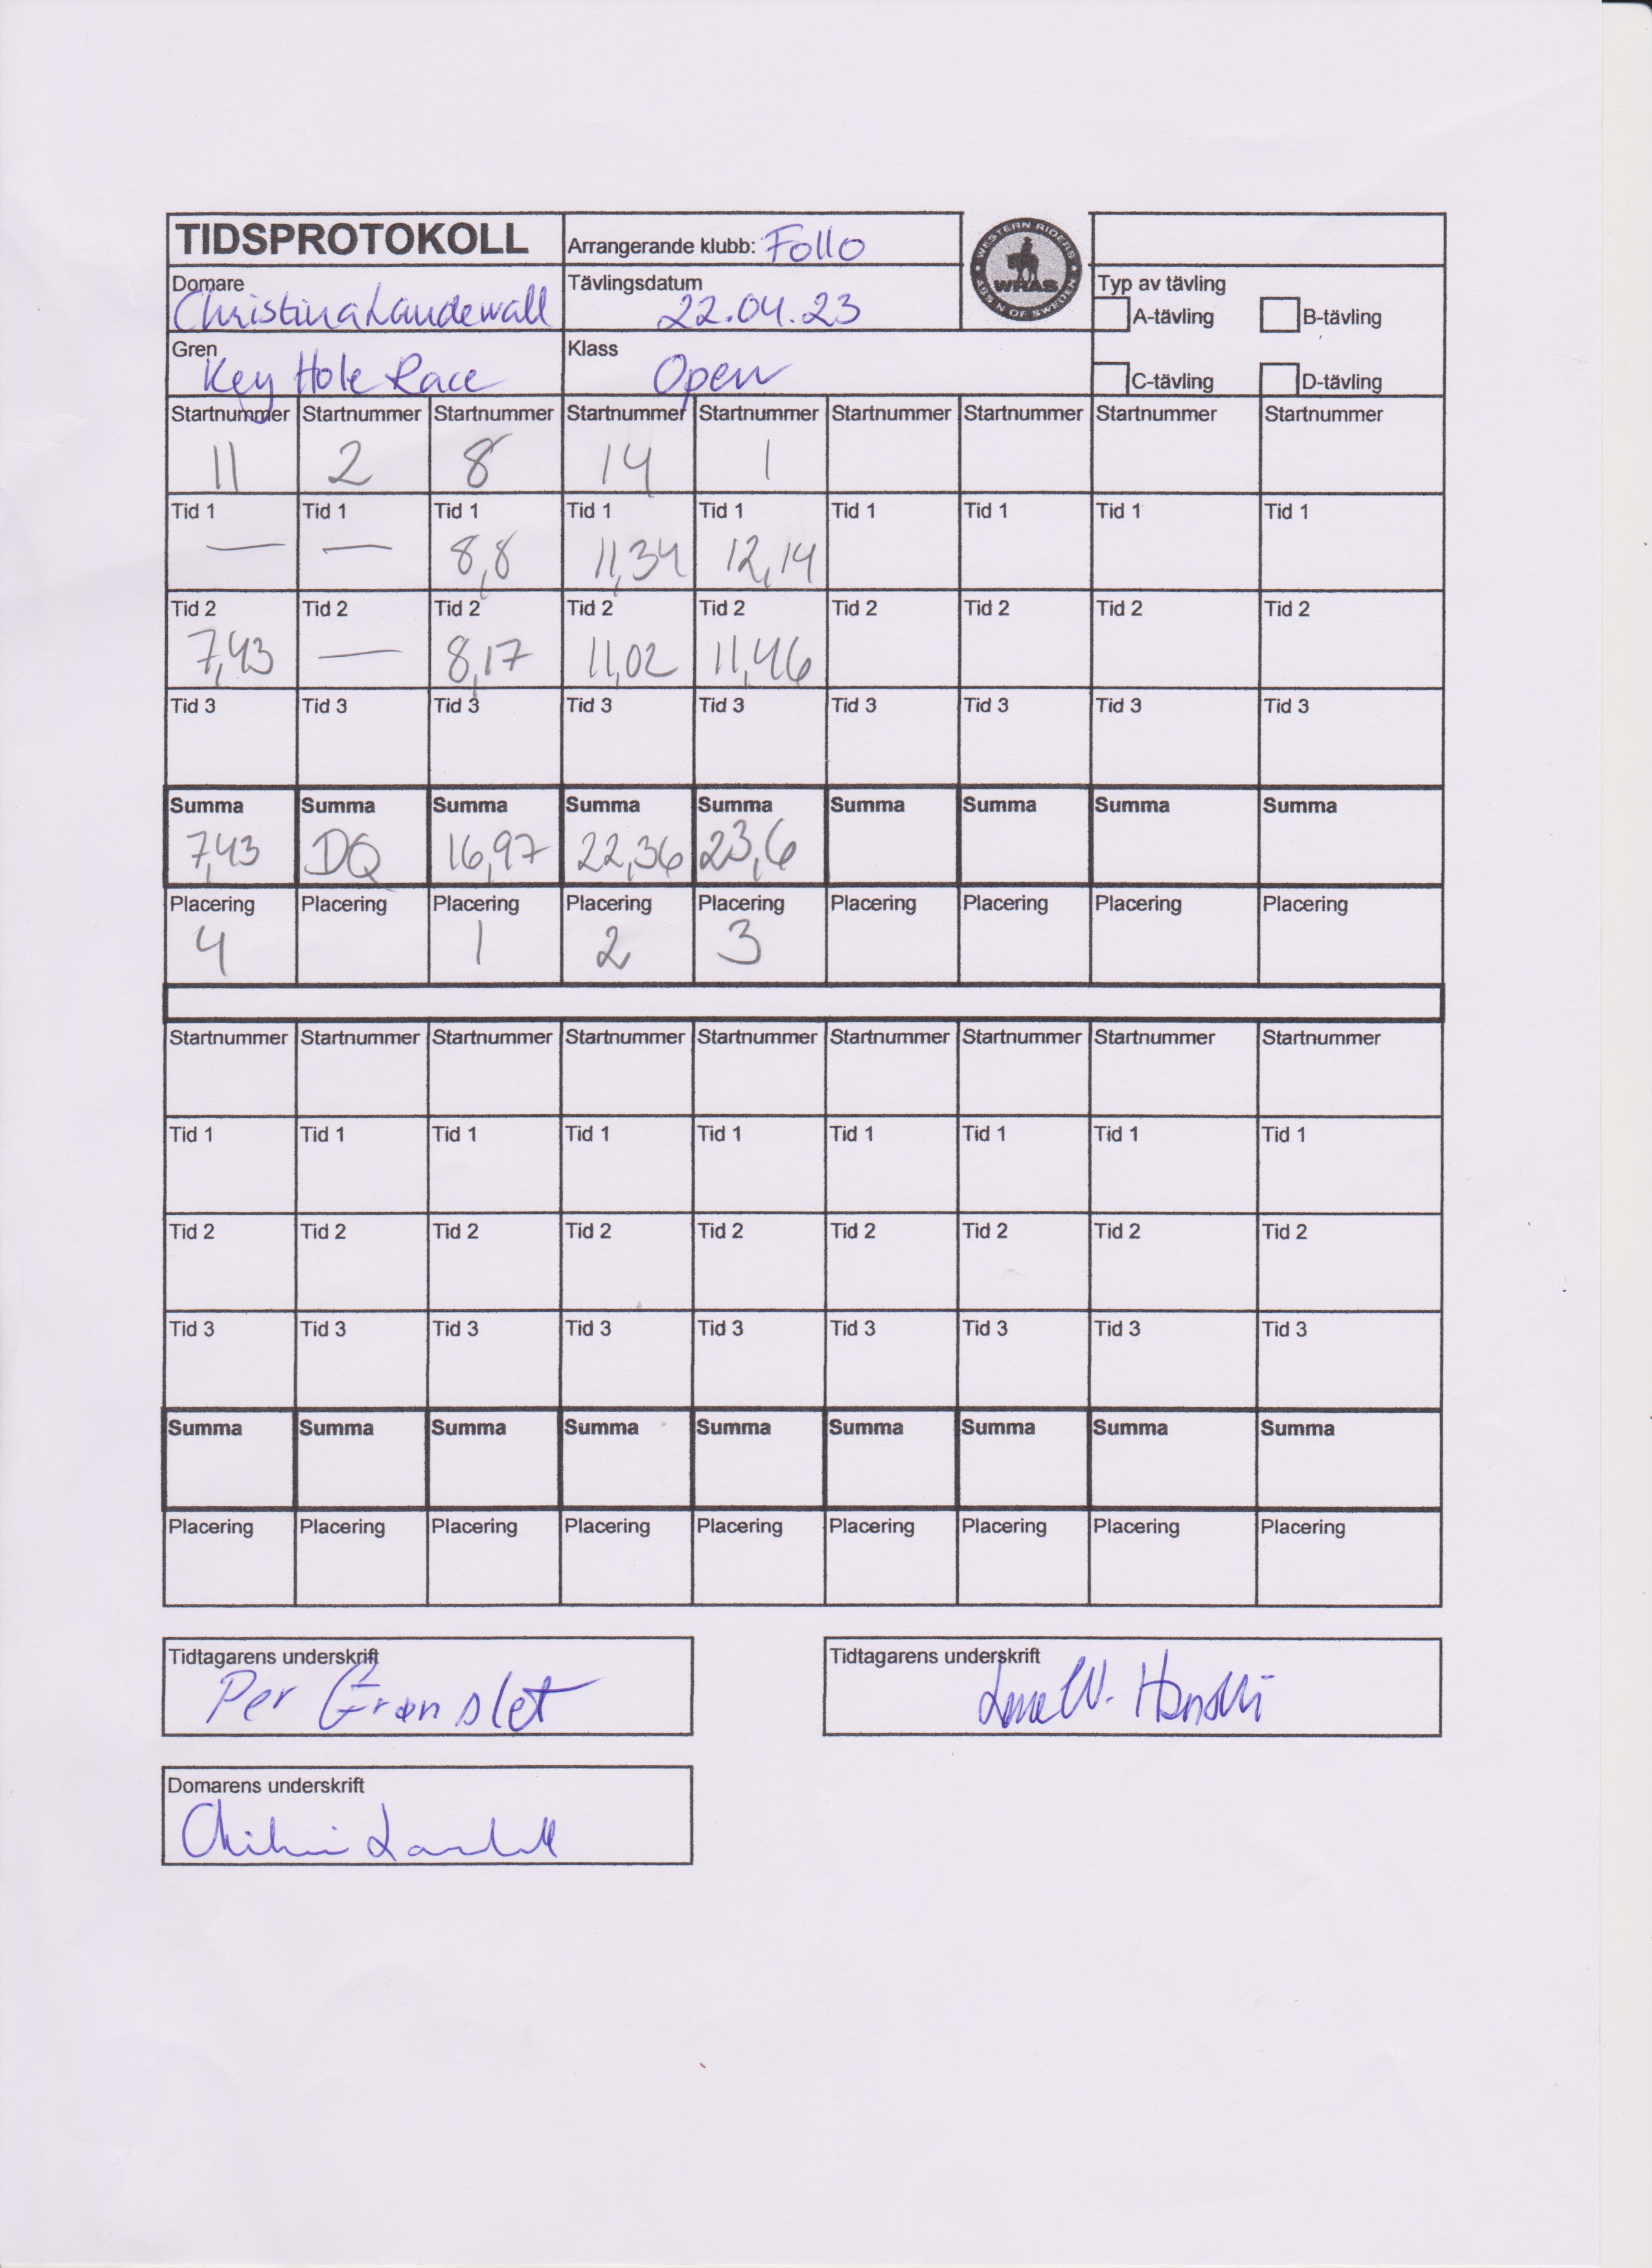 TIDSPROTOKOLL
Arrangerande klubb: Follo
WESTERN RIDERS
WRAS
ASS'N OF SWEDEN
Domare
Christina Landewall
Tävlingsdatum
22.04.23
Typ av tävling
A-tävling B-tävling
Gren
Key Hole Race
Klass
Open
C-tävling D-tävling
Startnummer Startnummer Startnummer Startnummer Startnummer Startnummer Startnummer Startnummer Startnummer
11 2 8 14 1
Tid 1 Tid 1 Tid 1 Tid 1 Tid 1 Tid 1 Tid 1 Tid 1 Tid 1
— — 8,8 11,34 12,14
Tid 2 Tid 2 Tid 2 Tid 2 Tid 2 Tid 2 Tid 2 Tid 2 Tid 2
7,43 — 8,17 11,02 11,46
Tid 3 Tid 3 Tid 3 Tid 3 Tid 3 Tid 3 Tid 3 Tid 3 Tid 3
Summa Summa Summa Summa Summa Summa Summa Summa Summa
7,43 DQ 16,97 22,36 23,6
Placering Placering Placering Placering Placering Placering Placering Placering Placering
4 1 2 3
Startnummer Startnummer Startnummer Startnummer Startnummer Startnummer Startnummer Startnummer Startnummer
Tid 1 Tid 1 Tid 1 Tid 1 Tid 1 Tid 1 Tid 1 Tid 1 Tid 1
Tid 2 Tid 2 Tid 2 Tid 2 Tid 2 Tid 2 Tid 2 Tid 2 Tid 2
Tid 3 Tid 3 Tid 3 Tid 3 Tid 3 Tid 3 Tid 3 Tid 3 Tid 3
Summa Summa Summa Summa Summa Summa Summa Summa Summa
Placering Placering Placering Placering Placering Placering Placering Placering Placering
Tidtagarens underskrift
Per Grønslet
Tidtagarens underskrift
Domarens underskrift